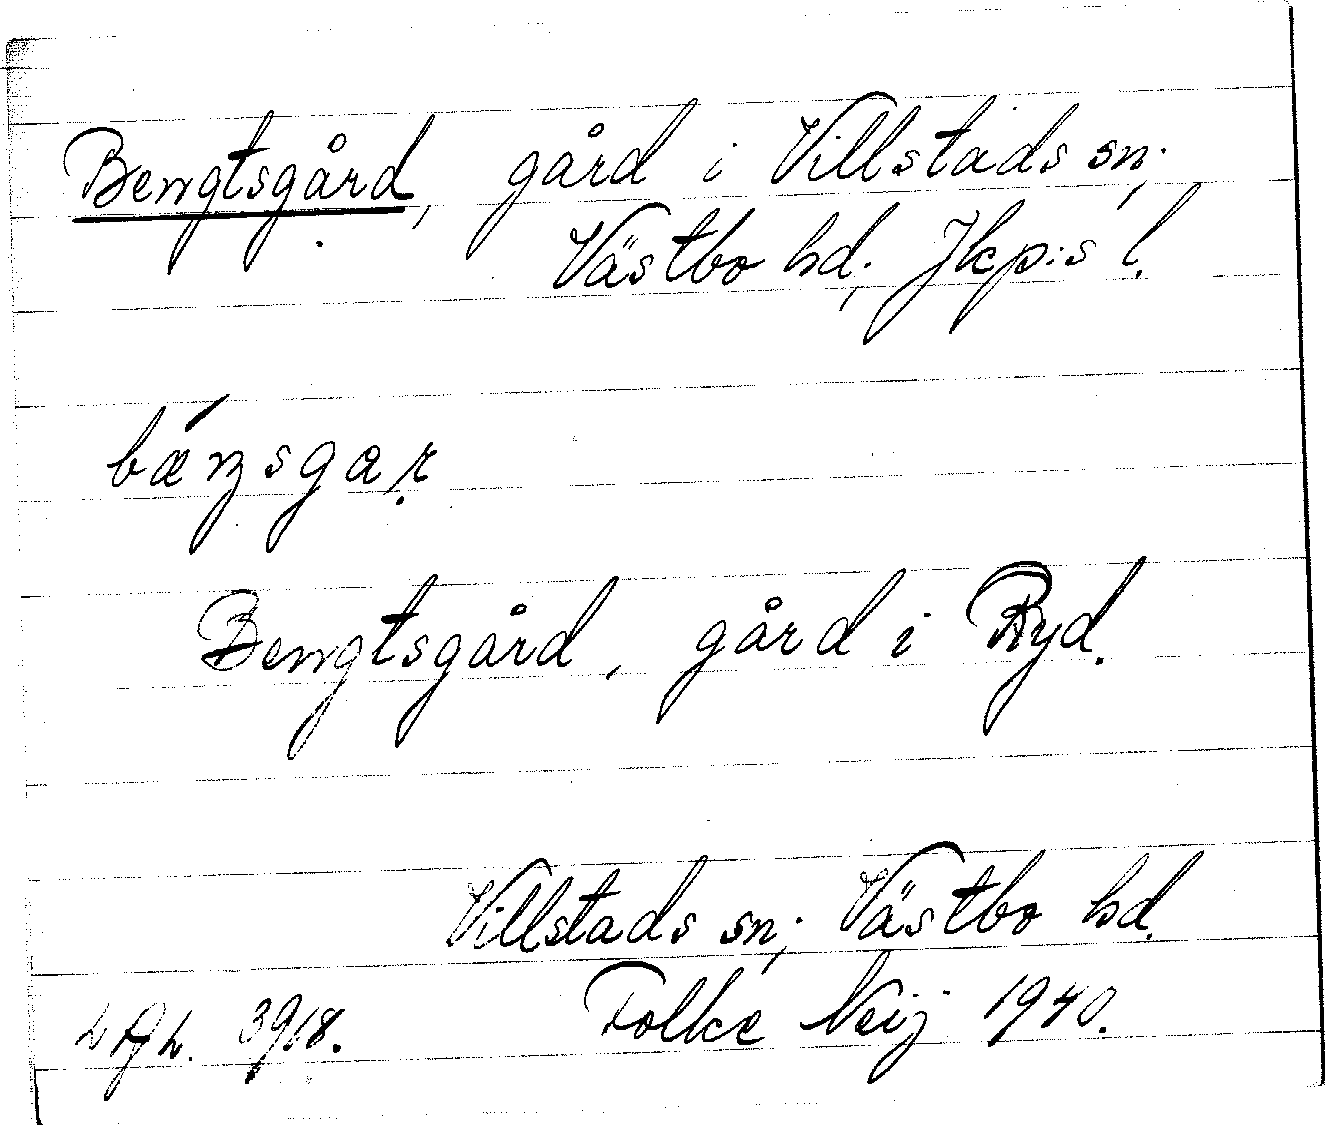 Bengtsgård, gård i Villstads sn.,
Västbo hd., Jkp:s l.
bǽŋsgaṛ
Bengtsgård, gård i Ryd.
Villstads sn., Västbo hd.
Folke Neij 1940.
3918.